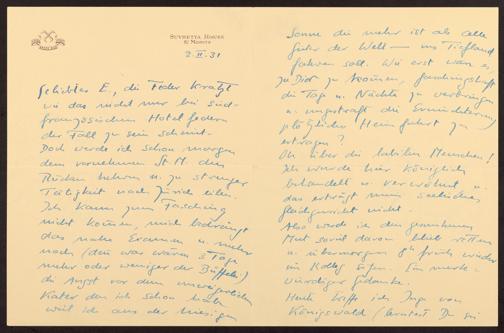 SUVRETTA HOUSE
ST MORITZ
2. II. 31
Geliebter E, die Feder kratzt
wie das nicht nur bei Süd-
französischen Hotelfedern
der Fall zu sein scheint.
Doch werde ich schon morgen
dem vornehmen St. M. den
Rücken kehren u. zu strenger
Tätigkeit nach Zürich eilen.
Ich kann zum Fasching
nicht kommen, mich bedrängt
das nahe Examen u. mehr
noch (denn was wären 3 Tage
mehr oder weniger der Büffelei)
die Angst vor dem unweigerlichen
Kater den ich schon habe
weil ich aus der hiesigen
Sonne die mehr ist als alle
Güter der Welt — ins Tiefland
fahren soll. Wie erst wäre es,
zu Dir zu kommen, faschingshaft
die Tage u. Nächte zu verbringen
u. ungestraft die Ernüchterung
plötzlicher Heimfahrt zu
ertragen?
Oh über die labilen Menschen!
Ich wurde hier königlich
behandelt u. verwöhnt u.
das erträgt mein seelisches
Gleichgewicht nicht.
Also werde ich den
Mut soviel davon blieb retten
u. übermorgen früh wieder
im Kolleg sitzen. Ein merk-
würdiger Gedanke.
Heute treffe ich Inge von
Königswald (kennst Du sie